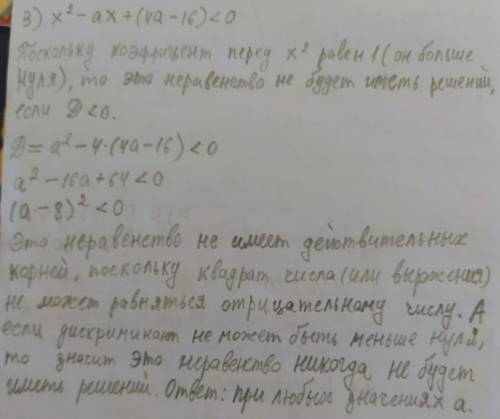 3) x² - ax + (4a - 16) < 0
Поскольку коэффицент перед x² равен 1 (он больше
нуля), то это неравенство не будет иметь решений,
если D < 0.
D = a² - 4·(4a - 16) < 0
a² - 16a + 64 < 0
(a - 8)² < 0
Это неравенство не имеет действительных
корней, поскольку квадрат числа (или выржения)
не может равняться отрицательному числу. А
если дискриминант не может быть меньше нуля,
то значит это неравенство никогда не будет
иметь решений. Ответ: при любых значениях a.